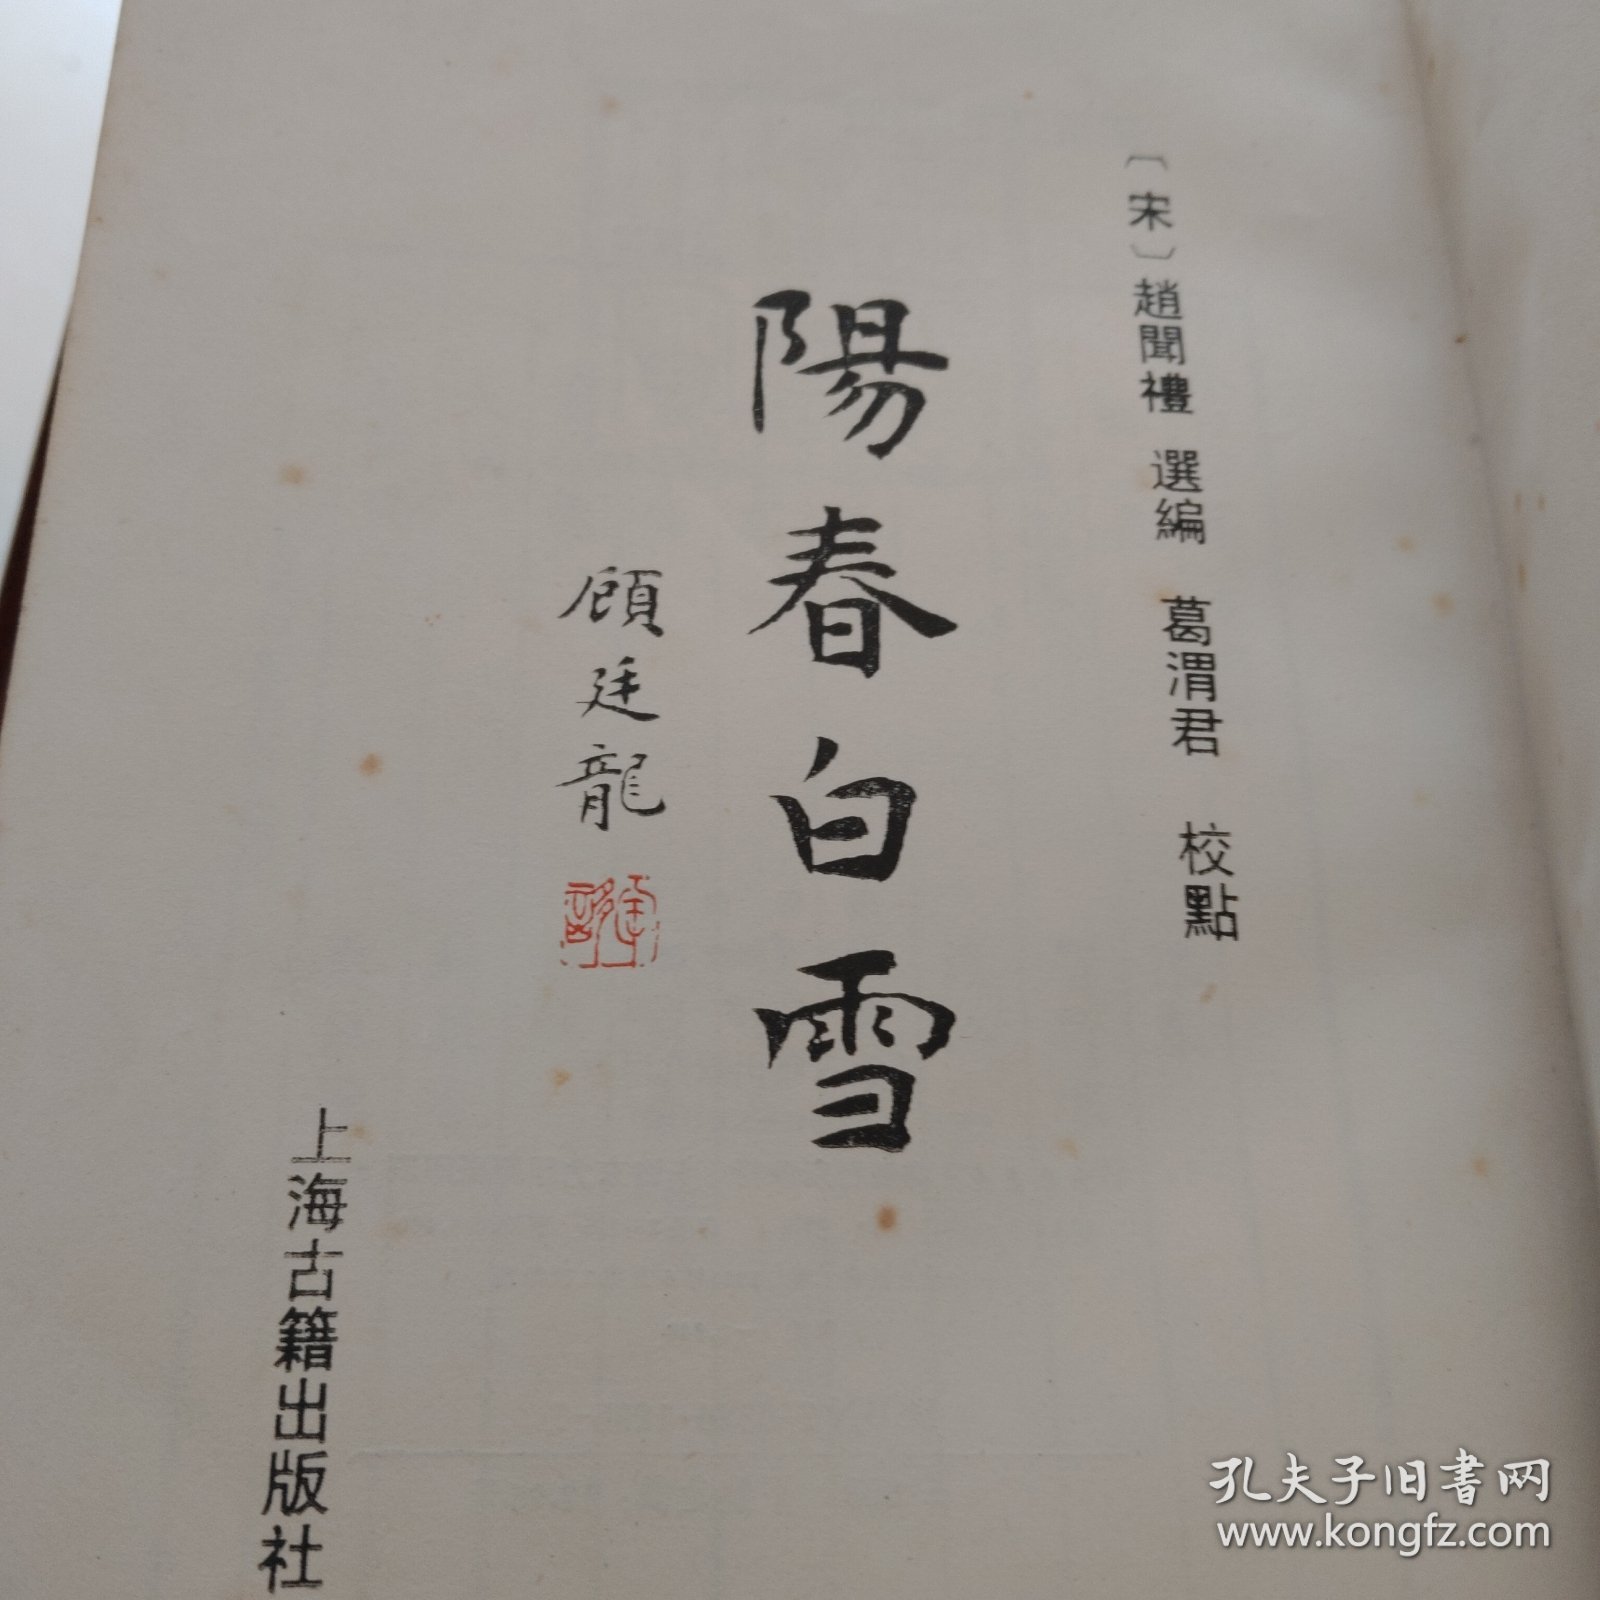 〔宋〕趙聞禮 選編 葛渭君 校點
陽春白雪
顧廷龍
上海古籍出版社
孔夫子旧书网
www.kongfz.com